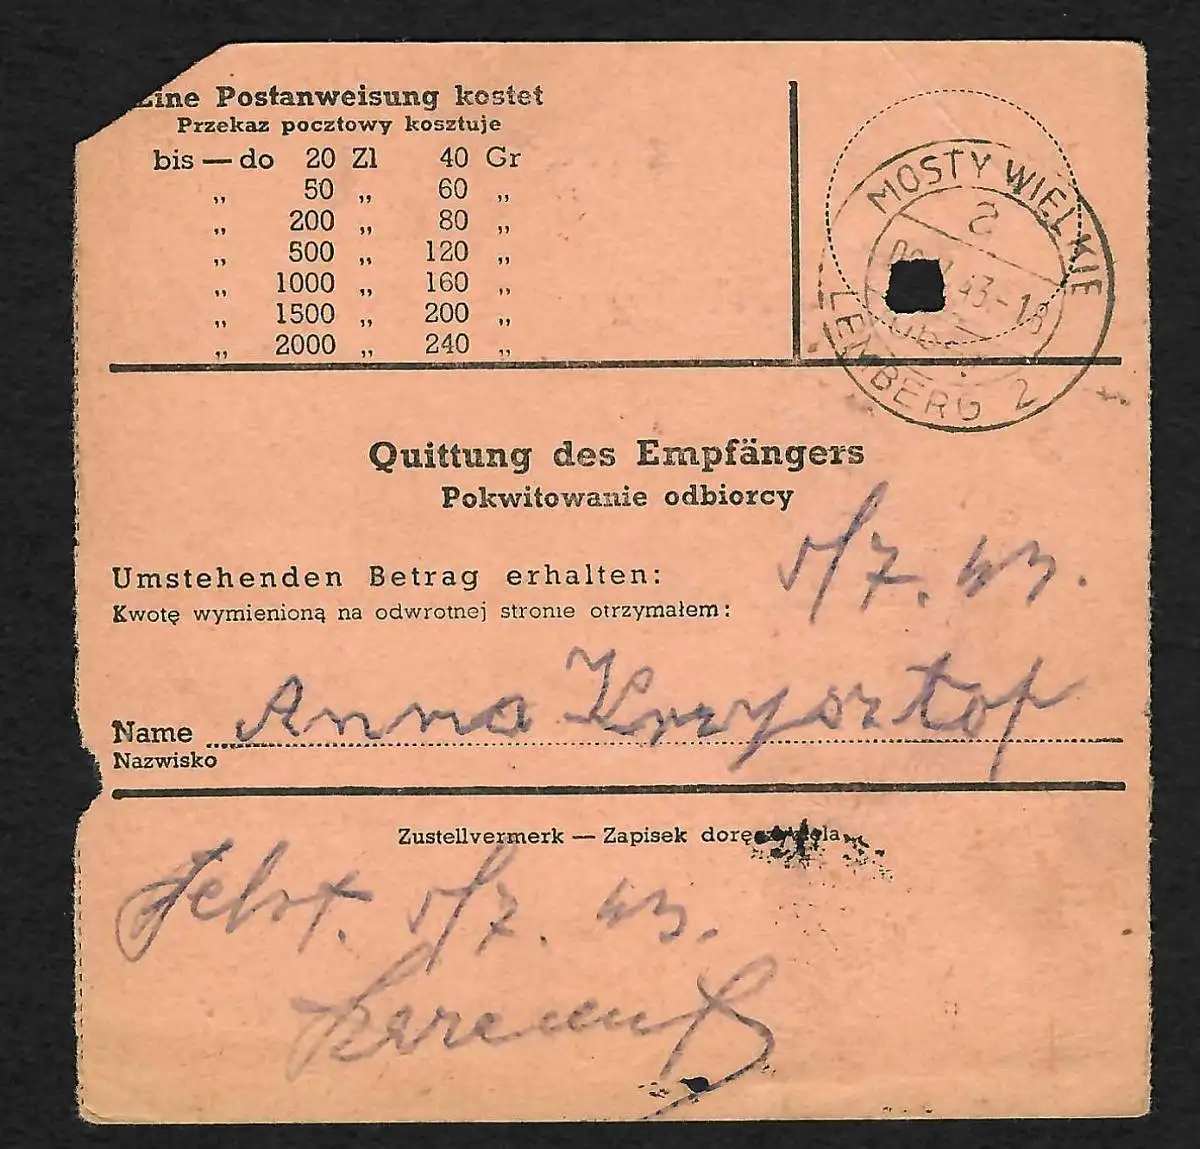 Eine Postanweisung kostet
Przekaz pocztowy kosztuje
bis — do 20 Zl 40 Gr
„ 50 „ 60 „
„ 200 „ 80 „
„ 500 „ 120 „
„ 1000 „ 160 „
„ 1500 „ 200 „
„ 2000 „ 240 „
MOSTY WIELKIE
43.-18
LEMBERG 2
Quittung des Empfängers
Pokwitowanie odbiorcy
Umstehenden Betrag erhalten:
Kwotę wymienioną na odwrotnej stronie otrzymałem:
5/7. 43.
Name Anna Krzysztof
Nazwisko
Zustellvermerk — Zapisek doręczyciela
5/7. 43.